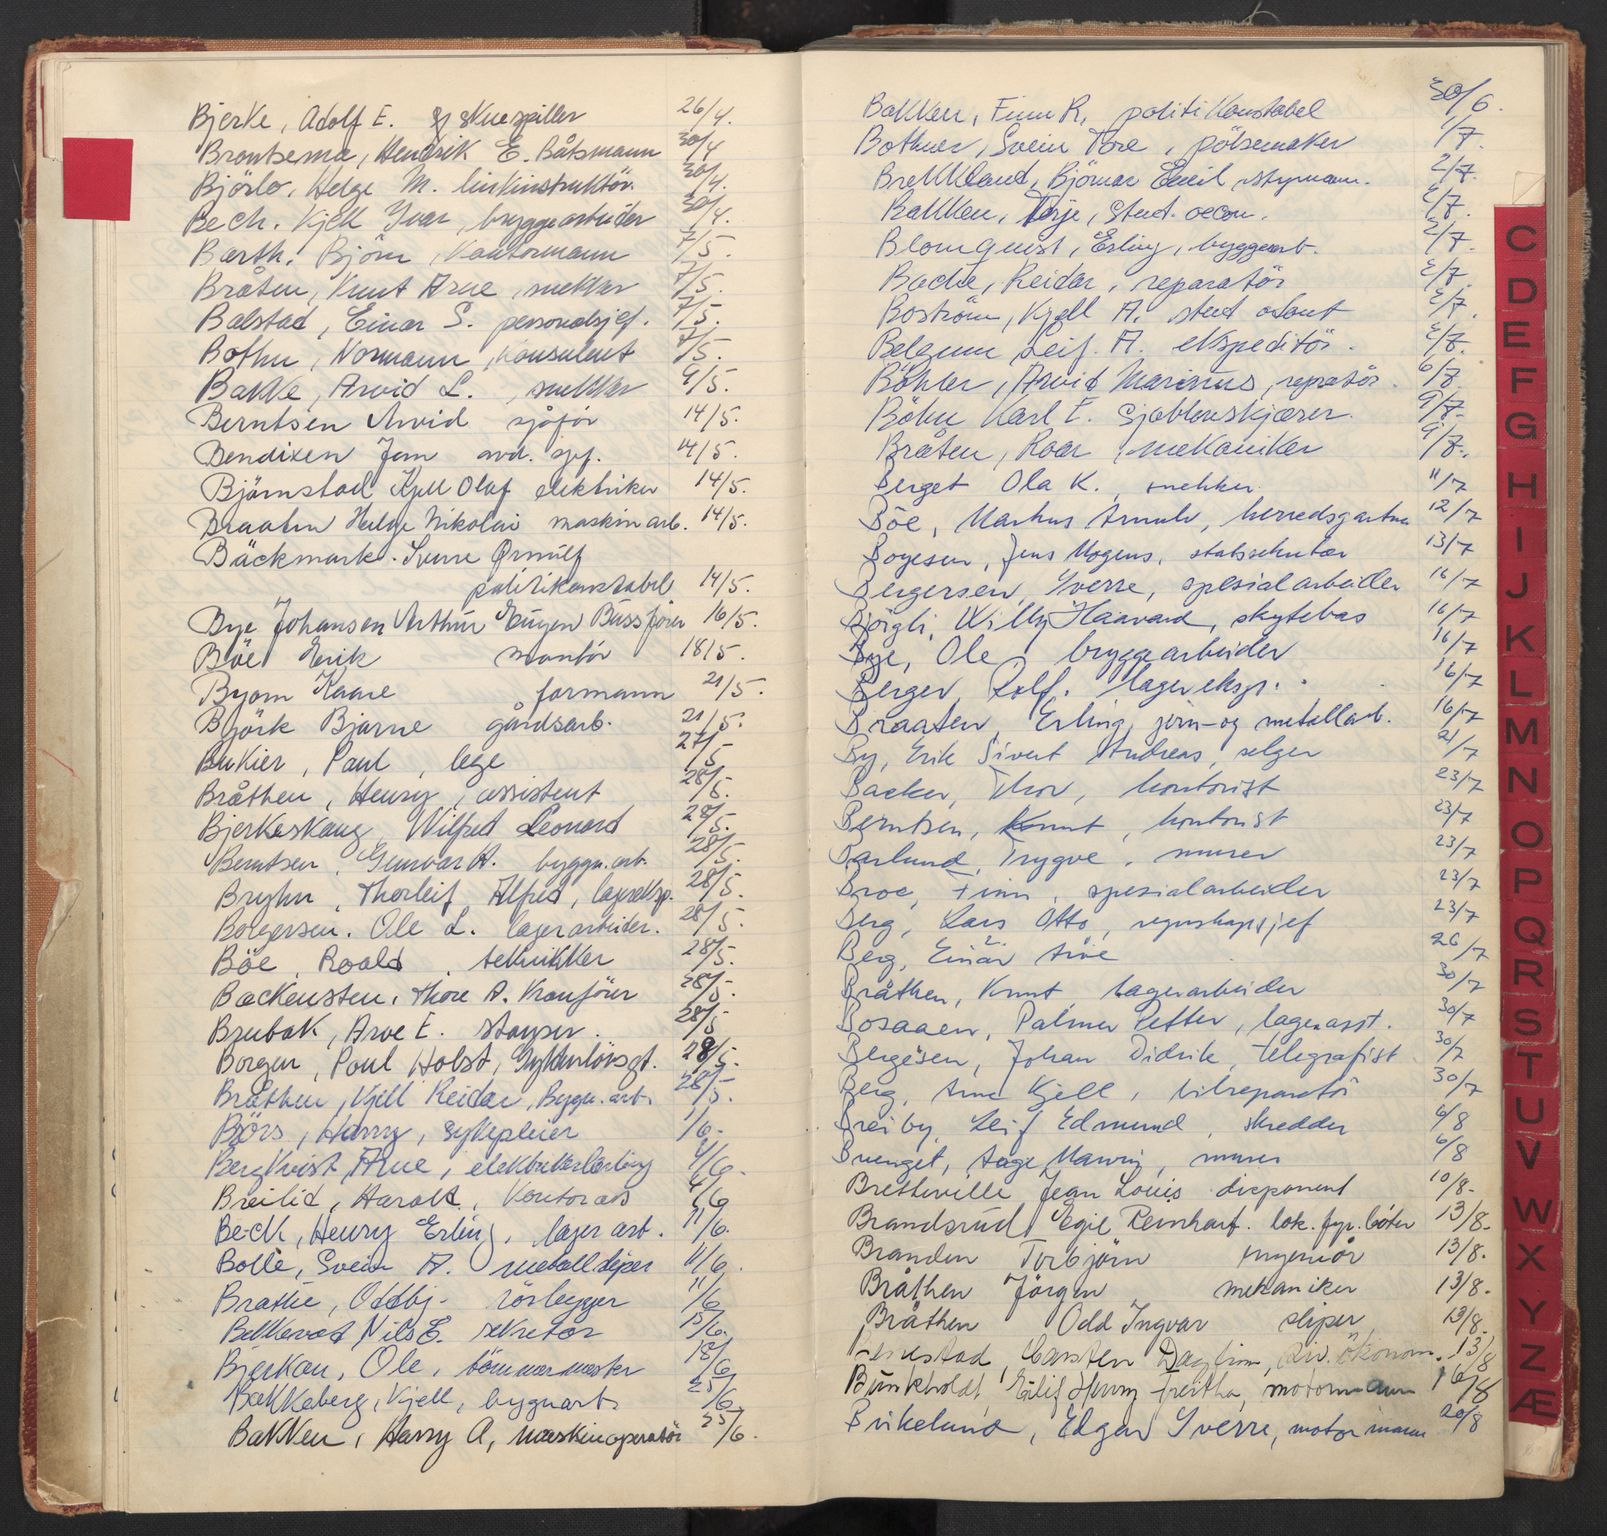 Bjerke, Adolf E. skuespiller 26/4.
Brontsema, Hendrik E. Båtsmann 30/4
Björlo, Helge M. linkinstruktör 30/4.
Bech. Kjell Ivar, bryggearbeider 30/4.
Barth. Björn, Kontormann 7/5.
Bråten, Knut Arne, snekker 7/5.
Balstad, Einar S. personalsjef. 7/5.
Bothn, Normann, konsulent 7/5.
Bakke, Arvid L., snekker 9/5.
Berntsen Arvid sjåför 14/5.
Bendixen Jan avd. sjef. 14/5.
Björnstad Kjell Olaf elektriker 14/5.
Braaten Helge Nikolai maskinarb. 14/5.
Bäckmark. Sverre Ørnulf
politikonstabel 14/5.
Bye Johansen Arthur Eugen Bussförer 16/5.
Böe Erik montör 18/5.
Byom Kaare formann 21/5.
Björk Bjarne gårdsarb. 21/5.
Bukier, Paul, lege 27/5
Bråthen, Henry, assistent 28/5.
Bjerkeskaug, Wilfred Leonard 28/5.
Berntsen, Gunvar H. byggn.arb. 28/5.
Bryhn, Thorleif, Alfred, lagereksp. 28/5.
Borgersen. Ole L. lagerarbeider. 28/5.
Böe, Roald, tekniker 28/5.
Backensten, Thore A. Kranförer 28/5.
Brubak, Arve E. 28/5
Borgen, Poul Holst, Gyldenlövsgt. 28/5.
Bråthen, Kjell Reidar, Byggn.arb. 28/5.
Börs, Harry, sykepleier 1/6.
Bergkvist, Arne, elektrikerlærling 4/6.
Breilid, Harald, Kontorass 4/6
Bech, Henry Erling, lager arb. 11/6.
Bolle, Svein A. metallsliper 11/6.
Brathe, Oddbj. rörlegger 11/6
Bekkevad, Nils E. sekretær 15/6.
Bjerkan, Ole, tömmermester 18/6
Bakkeberg, Kjell, bygnarb. 25/6
Bakken, Harry A, maskinoperatör 25/6.
Bakken, Finn R, politikonstabel 30/6.
Bothner, Svein Tore, pölsemaker 1/7.
Brekkland, Björnar Emil styrmann. 2/7.
Bakken, Terje, Stud. oecon. 2/7.
Blomquist, Erling, byggearb. 2/7.
Bache, Reidar, reparatör 2/7.
Boström, Kjell A. stud odont 2/7.
Belgum Leif. A. ekspeditör. 2/7.
Böhler, Arvid Marinus, repratör. 6/7.
Böhn Karl E. Sjablonskjærer. 9/7.
Bråten, Roar, mekaniker 9/7.
Berget Ola K., snekker. 11/7
Böe, Markus Arnulv, herredsgartner 12/7
Boyesen, Jens Mogens, statssekretær 13/7
Bergersen, Sverre, spesialarbeider 16/7
Björgli, Willy Haavard, skytebas 16/7
Bye, Ole, bryggearbeider 16/7
Berger, Rolf. lagereksp. 16/7
Braaten, Erling, jern- og metallarb. 16/7
By, Erik Sivert Andreas, selger 21/7
Backer, Thor, kontorist 23/7
Berntsen, Knut, kontorist 23/7
Barlund, Trygve, murer 23/7
Broe, Finn, spesialarbeider 23/7
Berg, Lars Otto, regnskapssjef 23/7
Berg, Einar Arve 26/7
Bråthen, Knut, lagerarbeider 30/7
Bosaaen, Palmer Petter, lagerasst. 30/7
Bergesen, Johan Didrik, telegrafist 30/7
Berg, Arne Kjell, bilreparatör 30/7
Breiby, Leif Edmund, skredder 6/8
Brenget, Aage Maurin, murer 6/8
Bretteville Jean Louis disponent 10/8.
Brandsrud, Egil Reinhart. lok.fyr.böter 13/8.
Branden Torbjörn ingeniör 13/8.
Bråthen Jörgen mekaniker 13/8.
Bråthen Odd Ingvar sliper 13/8.
Carsten Dagfinn, siv.ökonom. 13/8
Bunkholdt, Eilif Henry motormann 16/8
Birkelund, Edgar Sverre, motormann 20/8
C
D
E
F
G
H
I
J
K
L
M
N
O
P
Q
R
S
T
U
V
W
X
Y
Z
Æ